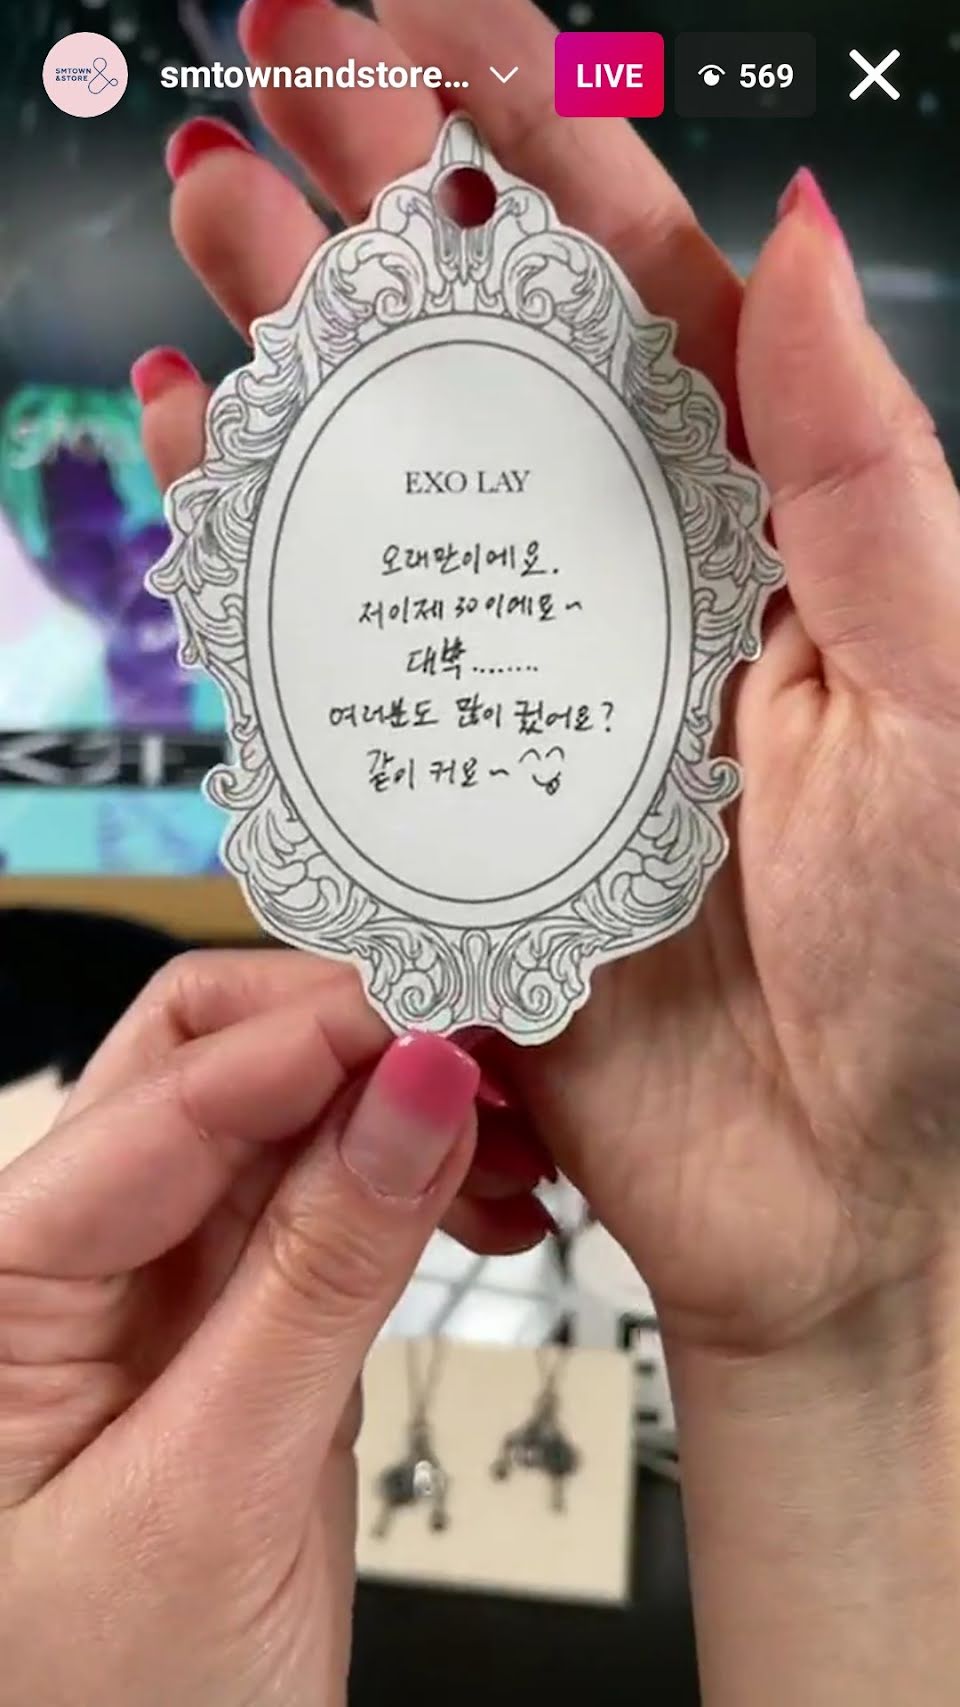 SMTOWN
&STORE
smtownandstore...
LIVE
569
EXO LAY
오래만이에요.
저이제 30이에요~
대박........
여러분도 많이 컸어요?
같이 커요~ ^^